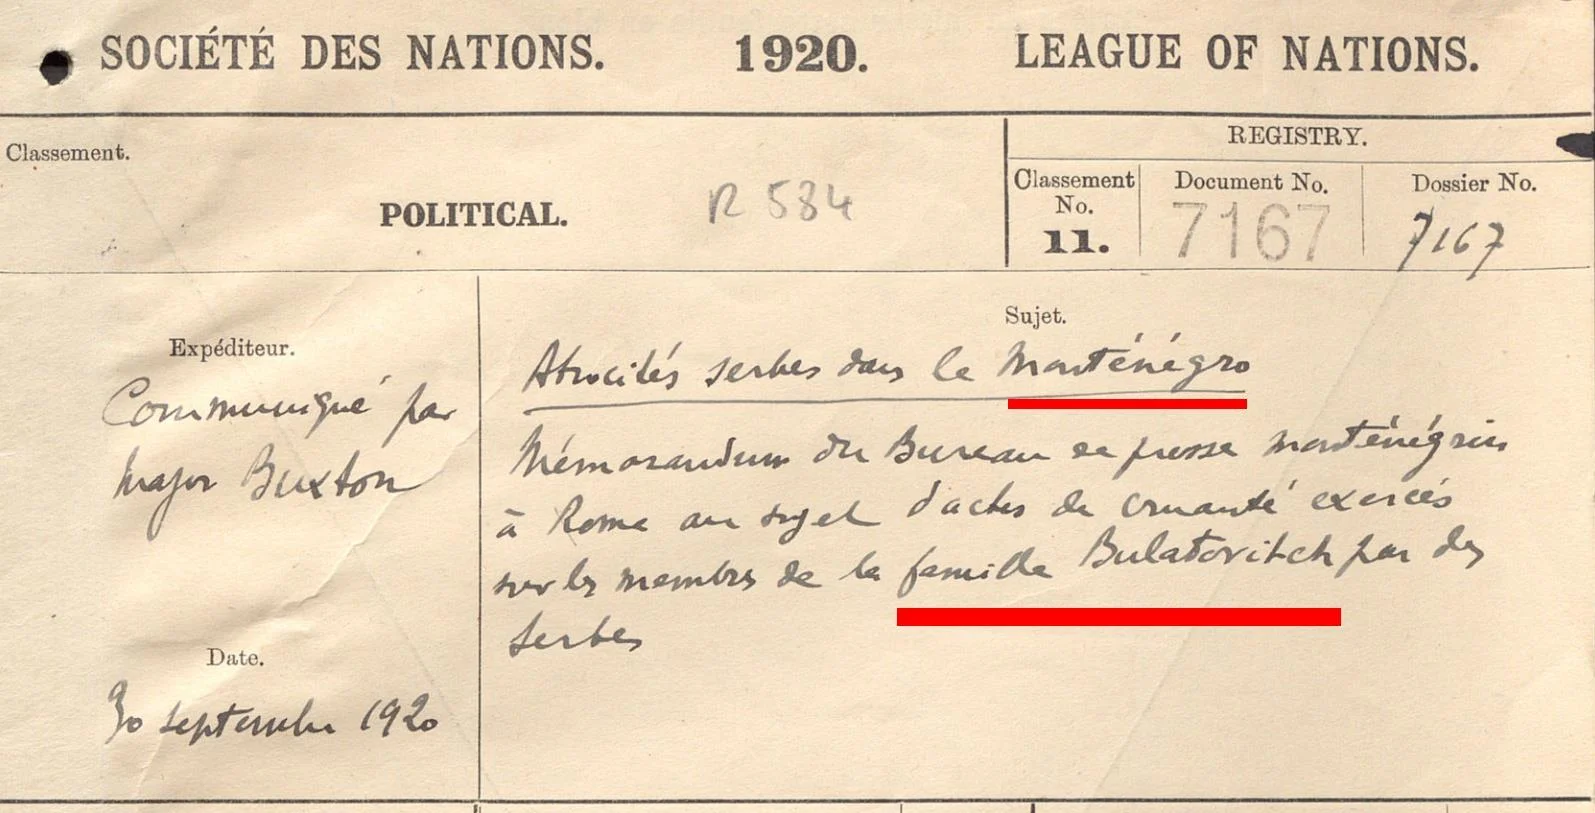 SOCIÉTÉ DES NATIONS. 1920. LEAGUE OF NATIONS.
Classement.
POLITICAL.
R 584
REGISTRY.
Classement No. 11.
Document No. 7167
Dossier No. 7167
Expéditeur.
Communiqué par
Major Buxton
Date.
30 septembre 1920
Sujet.
Atrocités serbes dans le Monténégro
Mémorandum du Bureau de presse monténégrin
à Rome au sujet d'actes de cruauté exercés
sur les membres de la famille Bulatovitch par des
serbes